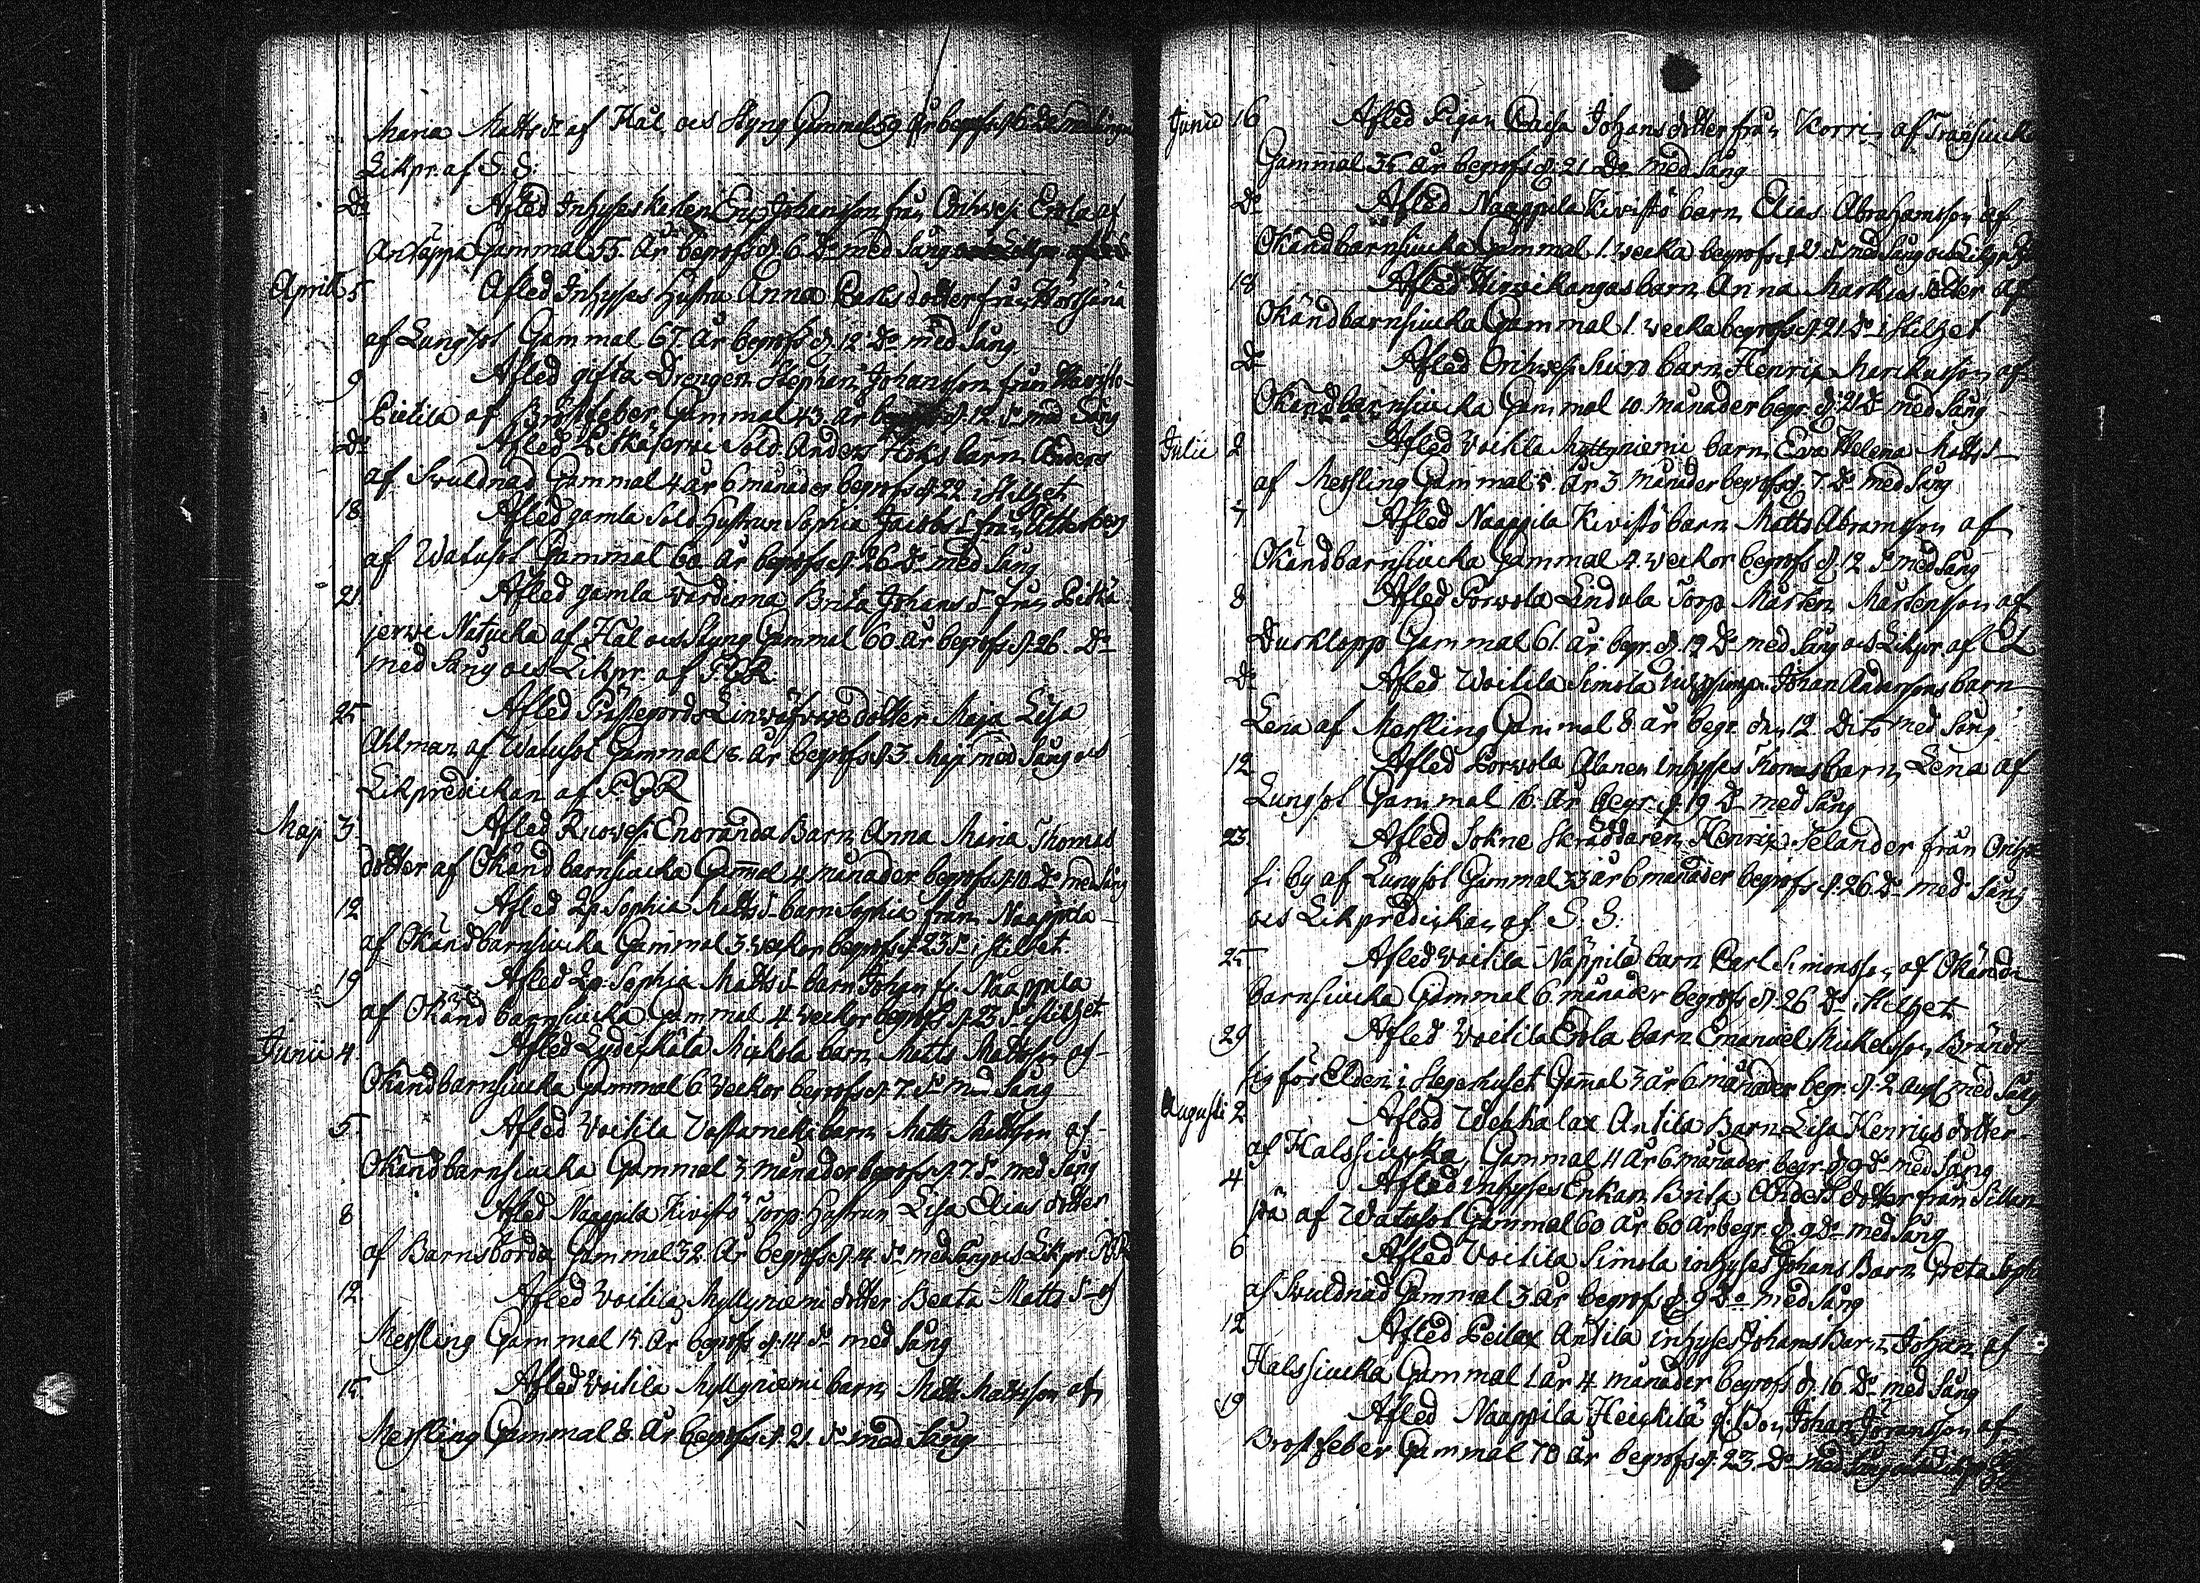 Maria Matts dr af Håll och Styng Gammal 59 år begrofs d. 6 Do med
Likpr. af S. S:
Do Afled Inhyses Karlen Eric Johansson från Orihvesi Erola af
Gammal 55. År begrofs d. 6. Do med Sång
Aprill 5 Afled Inhyses Hustru Anna Carlsdotter från
af Lungsot Gammal 67. år begrofs d. 12 Do med Sång
9 Afled gifta Drengen Stephan Johansson från
Pietila af Bröstfeber Gammal 43 år begrofs d. 12. do med Sång
Do Afled Pitkäjerwi Sold. Anders Höks barn Anders
af Swulnad Gammal 4 år 6 månader begrofs d. 22 i stillhet
18. Afled gamla Sold. Hustrun Sophia Jacobs d. från
af Watusot Gammal 60. år begrofs d. 26 Do med Sång
21 Afled gamla värdinna Brita Johans d. från Pitkä
jerwi Natucka af Håll och Styng Gammal 60 år begrofs d. 26. Do
med Sång och Likpr. af P. G. R.
25 Afled dotter Maja Lisa
Ahlman af Watusot Gammal 18. år begrofs d. 3. Maji med Sång och
Likpredikan af P. G. R
Maji 3 Afled Ruovesi Enoranda Barn Anna Maria Thomas
dotter af Okänd barnsiucka Gammal 4 månader begrofs d. 10. Do med Sång
12 Afled Qp. Sophia Matts d. barn Sophia från Naappila
af Okänd barnsiucka Gammal 3 veckor begrofs d. 23 d. i stillhet.
19 Afled Qp. Sophia Matts d. barn Johan fr. Naappila
af Okänd barnsiucka Gammal 4 veckor begrofs d. 23 d. i stillhet
Junii 4. Afled Mickola barn Matts Mattsson af
Okänd barnsiucka Gammal 6 veckor begrofs d. 7. do med Sång
5. Afled Voitila barn Matts Mattsson af
Okänd barnsiucka Gammal 3. månader begrofs d. 7. do med Sång
8 Afled Naappila Kivistö Torp. Hustrun Lisa Elias dotter
af Barnsbörda Gammal 32. År begrofs d. 14. do med Sång och Likpr.
12. Afled Voitila Myllyniemi dotter Beata Matts d. af
Messling Gammal 15. År begrofs d. 14 do med Sång
15. Afled Voitila Myllyniemi barn Matts Mattsson af
Messling Gammal 8. År begrofs d. 21. do med Sång
Junii 16 Afled Pigan Caisa Johansdotter från Korri af
Gammal 35. År begrofs d. 21 Do med Sång
Do Afled Naappila Kivistö barn Elias Abrahamsson af
Okänd barnsiucka Gammal 1. vecka begrofs d. 21 do med Sång och
18 Afled Hirvikangas barn Anna Markus doter af
Okänd barnsiucka Gammal 1. vecka begrofs d. 21 Do i stillhet
Do Afled Orihvesi barn Henric Markusson af
Okänd barnsiucka Gammal 10. månader begr. d. 21 Do med Sång
Julii 2 Afled Voitila Myllyniemi barn Eva Helena Matts d.
af Messling Gammal 5. År 3. månader begrofs d. 7. Do med Sång
7 Afled Naappila Kivistö barn Matts Abramsson af
Okänd barnsiucka Gammal 4. veckor begrofs d. 12. do med Sång
8 Afled Porvola Lindula Torp. Mårten Mårtensson af
Durklopp Gammal 61. år begr. d. 19 Do med Sång och Likpr. af
Do Afled Voitila Simola Johan Anderssons barn
Lena af Messling Gammal 8 år begr. den 12. Dito med Sång
12 Afled Porvola Alanen inhyses Thomas barn Lena af
Lungsot Gammal 16. År begr. d. 19 Do med Sång
23. Afled Sokne Skräddaren Henric Selander från Orihve
si by af Lungsot Gammal 33 år 6 månader begrofs d. 26. Do med Sång
och Likpredickan af S. S:
25 Afled Voitila Näppilä barn Carl Simonsson af Okänd
barnsiucka Gammal 6 månader begrofs d. 26 Do i stillhet
29 Afled Voitila Erola barn Emanuel Michelsson Brände
sig för Elden i Stegerhuset Gammal 3 år 6 månader begr. d. 2 Aug. med Sång
Augusti 2 Afled Wehkalax Antila Barn Lisa Henrics dotter
af Halssiucka Gammal 4 År 6 månader begr. d. 9 do med Sång
4 Afled inhyses Enkan Brita Anders dotter från Sillan
pä af Watusot Gammal 60 År 60 år begr. d. 9 Do med Sång
6 Afled Voitila Simola inhyses Johans Barn Greta Sophia
af Swulnad Gammal 3 År begrofs d. 9 Do med Sång
12 Afled Peilax Antila inhyses Johans Barn Johan af
Halssiucka Gammal 1 år 4 månader begrofs d. 16. Do med Sång
19 Afled Naappila Heickilä g. Bon. Johan Jöransson af
Bröstfeber Gammal 70 år begrofs d. 23. Do med Sång